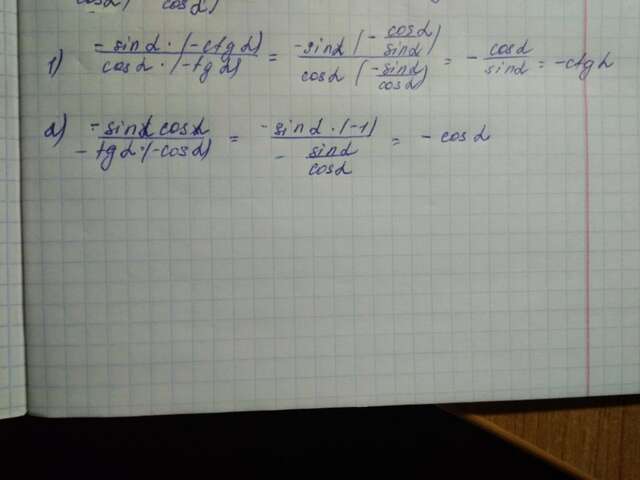 cosα) cosα)
1) = sinα · (-ctgα) / cosα · (-tgα) = -sinα (- cosα/sinα) / cosα (-sinα/cosα) = - cosα/sinα = -ctgα
2) = sinα cosα / - tgα · (-cosα) = -sinα · (-1) / - sinα/cosα = - cosα